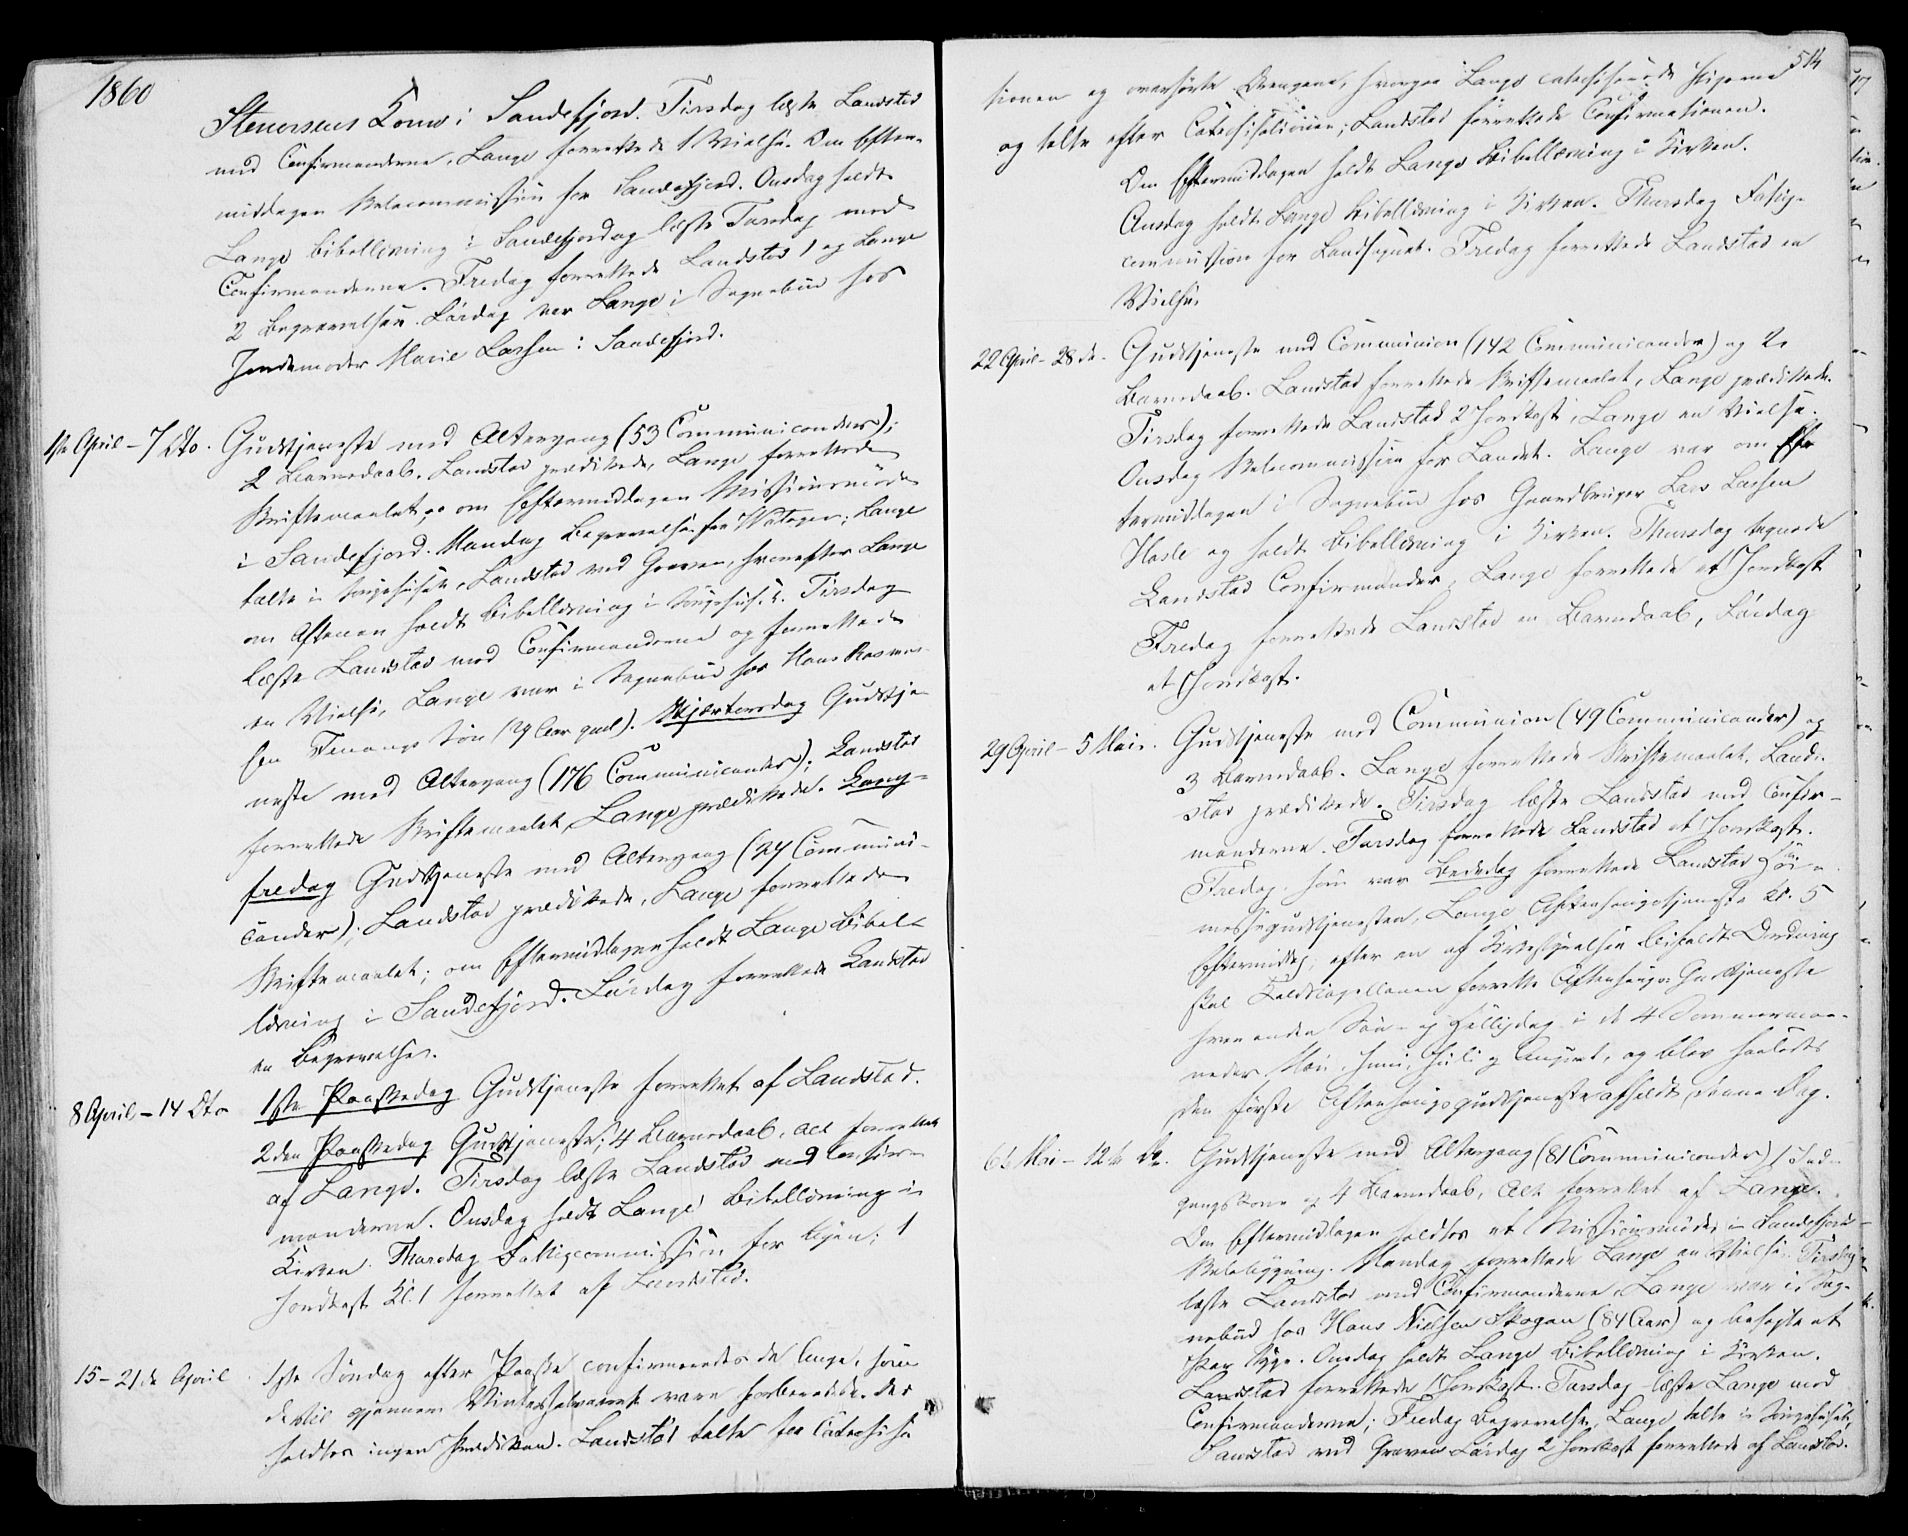 1860
Steuersens Kone i Sandefjord. Tirsdag læste Landstad
med Confirmanderne, Lange forrettede 1 Vielse. Om Efter-
middagen Skolecommission for Sandefjord. Onsdag holdt
Lange Bibellæsning i Sandefjord og læste Torsdag med
Confirmanderne. Fredag forrettede Landstad 1 og Lange
2 Begravelser. Lördag var Lange i Sognebud hos
Jordemoder Marie Larsen i Sandefjord.
1ste April – 7 Dto. Gudstjeneste med Altergang (53 Communicander);
2 Barnedaab. Landstad prædikede, Lange forrettede
Skriftemaalet, om Eftermiddagen Missionsmöde
i Sandefjord. Mandag Begravelse fra; Lange
talte i Sörgehuset, Landstad ved Graven, hvorefter Lange
om Aftenen holdt Bibellæsning i Sörgehuset. Tirsdag
læste Landstad med Confirmanderne og forrettede
en Vielse, Lange var i Sognebud hos Hans Rasmus-
sen Sön (29 Aar gml). Skjærtorsdag Gudstje-
neste med Altergang (176 Communicander); Landstad
forrettede Skriftemaalet, Lange prædikede. Lang-
fredag Gudstjeneste med Altergang (24 Communi-
cander); Landstad prædikede, Lange forrettede
Skriftemaalet; om Eftermiddagen holdt Lange Bibel-
læsning i Sandefjord. Lördag forrettede Landstad
en Begravelse.
8 April – 14 Dto 1ste Paaskedag Gudstjeneste forrettet af Landstad.
2den Paaskedag Gudstjeneste; 4 Barnedaab, Alt forrettet
af Lange. Tirsdag læste Landstad med Confir-
manderne. Onsdag holdt Lange Bibellæsning i
Kirken. Thorsdag Fattigcommission for Byen; 1
Jordkast Kl. 1 forrettet af Landstad.
15 – 21de April 1ste Söndag efter Paaske confirmeredes de Unge, som
dertil gjennem Vinterhalvaaret vare forberedede. Der
holdtes ingen Prædiken. Landstad talte för Catechisa-
514
tionen og overhörte Drengene, hvorpaa Lange catechiserede Pigerne
og talte efter Catechisationen; Landstad forrettede Confirmationen.
Om Eftermiddagen holdt Lange Bibellæsning i Kirken.
Onsdag holdt Lange Bibellæsning i Kirken. Thorsdag Fattig-
commission for Landsognet. Fredag forrettede Landstad en
Vielse.
22 April – 28 de. Gudstjeneste med Communion (142 Communicander) og 2
Barnedaab. Landstad forrettede Skriftemaalet, Lange prædikede.
Tirsdag forrettede Landstad 2 Jordkast, Lange en Vielse.
Onsdag Skolecommission for Landet. Lange var om Ef-
termiddagen i Sognebud hos Gaardbruger Lars Larsen
Hasle og holdt Bibellæsning i Kirken. Thorsdag tegnede
Landstad Confirmander, Lange forrettede et Jordkast
Fredag forrettede Landstad en Barnedaab, Lördag
et Jordkast.
29 April – 5 Mai. Gudstjeneste med Communion (49 Communicander) og
3 Barnedaab. Lange forrettede Skriftemaalet, Land-
stad prædikede. Tirsdag læste Landstad med Confir-
manderne. Torsdag forrettede Landstad et Jordkast.
Fredag, som var Bededag forrettede Landstad Höi-
messegudstjenesten, Lange Aftensangstjeneste Kl. 5
Eftermiddag; efter en af Kirkestyrelsen bifaldt Ordning
skal Feldtcapellanen forrette Aftensangs Gudstjeneste
hver anden Sön- og Helligdag i de 4 Sommermaa-
neder Mai, Juni, Juli og August, og blev saaledes
den förste Aftensangsgudstjeneste afholdt denne Dag.
6te Mai – 12te Do. Gudstjeneste med Altergang (81 Communicander) 1 Ind-
gangskone og 4 Barnedaab, Alt forrettet af Lange.
Om Eftermiddagen holdtes et Missionsmöde i Sandefjords
Skolebygning. Mandag forrettede Lange en Vielse. Tirsdag
læste Landstad med Confirmanderne, Lange var i Sog-
nebud hos Hans Nielsen Skogan (84 Aar) og besögte et
Par Syge. Onsdag holdt Lange Bibellæsning i Kirken.
Landstad forrettede 1 Jordkast. Torsdag læste Lange med
Confirmanderne; Fredag Begravelse, Lange talte i Sörgehuset,
Landstad ved Graven Lördag 2 Jordkast forrettede af Landstad.